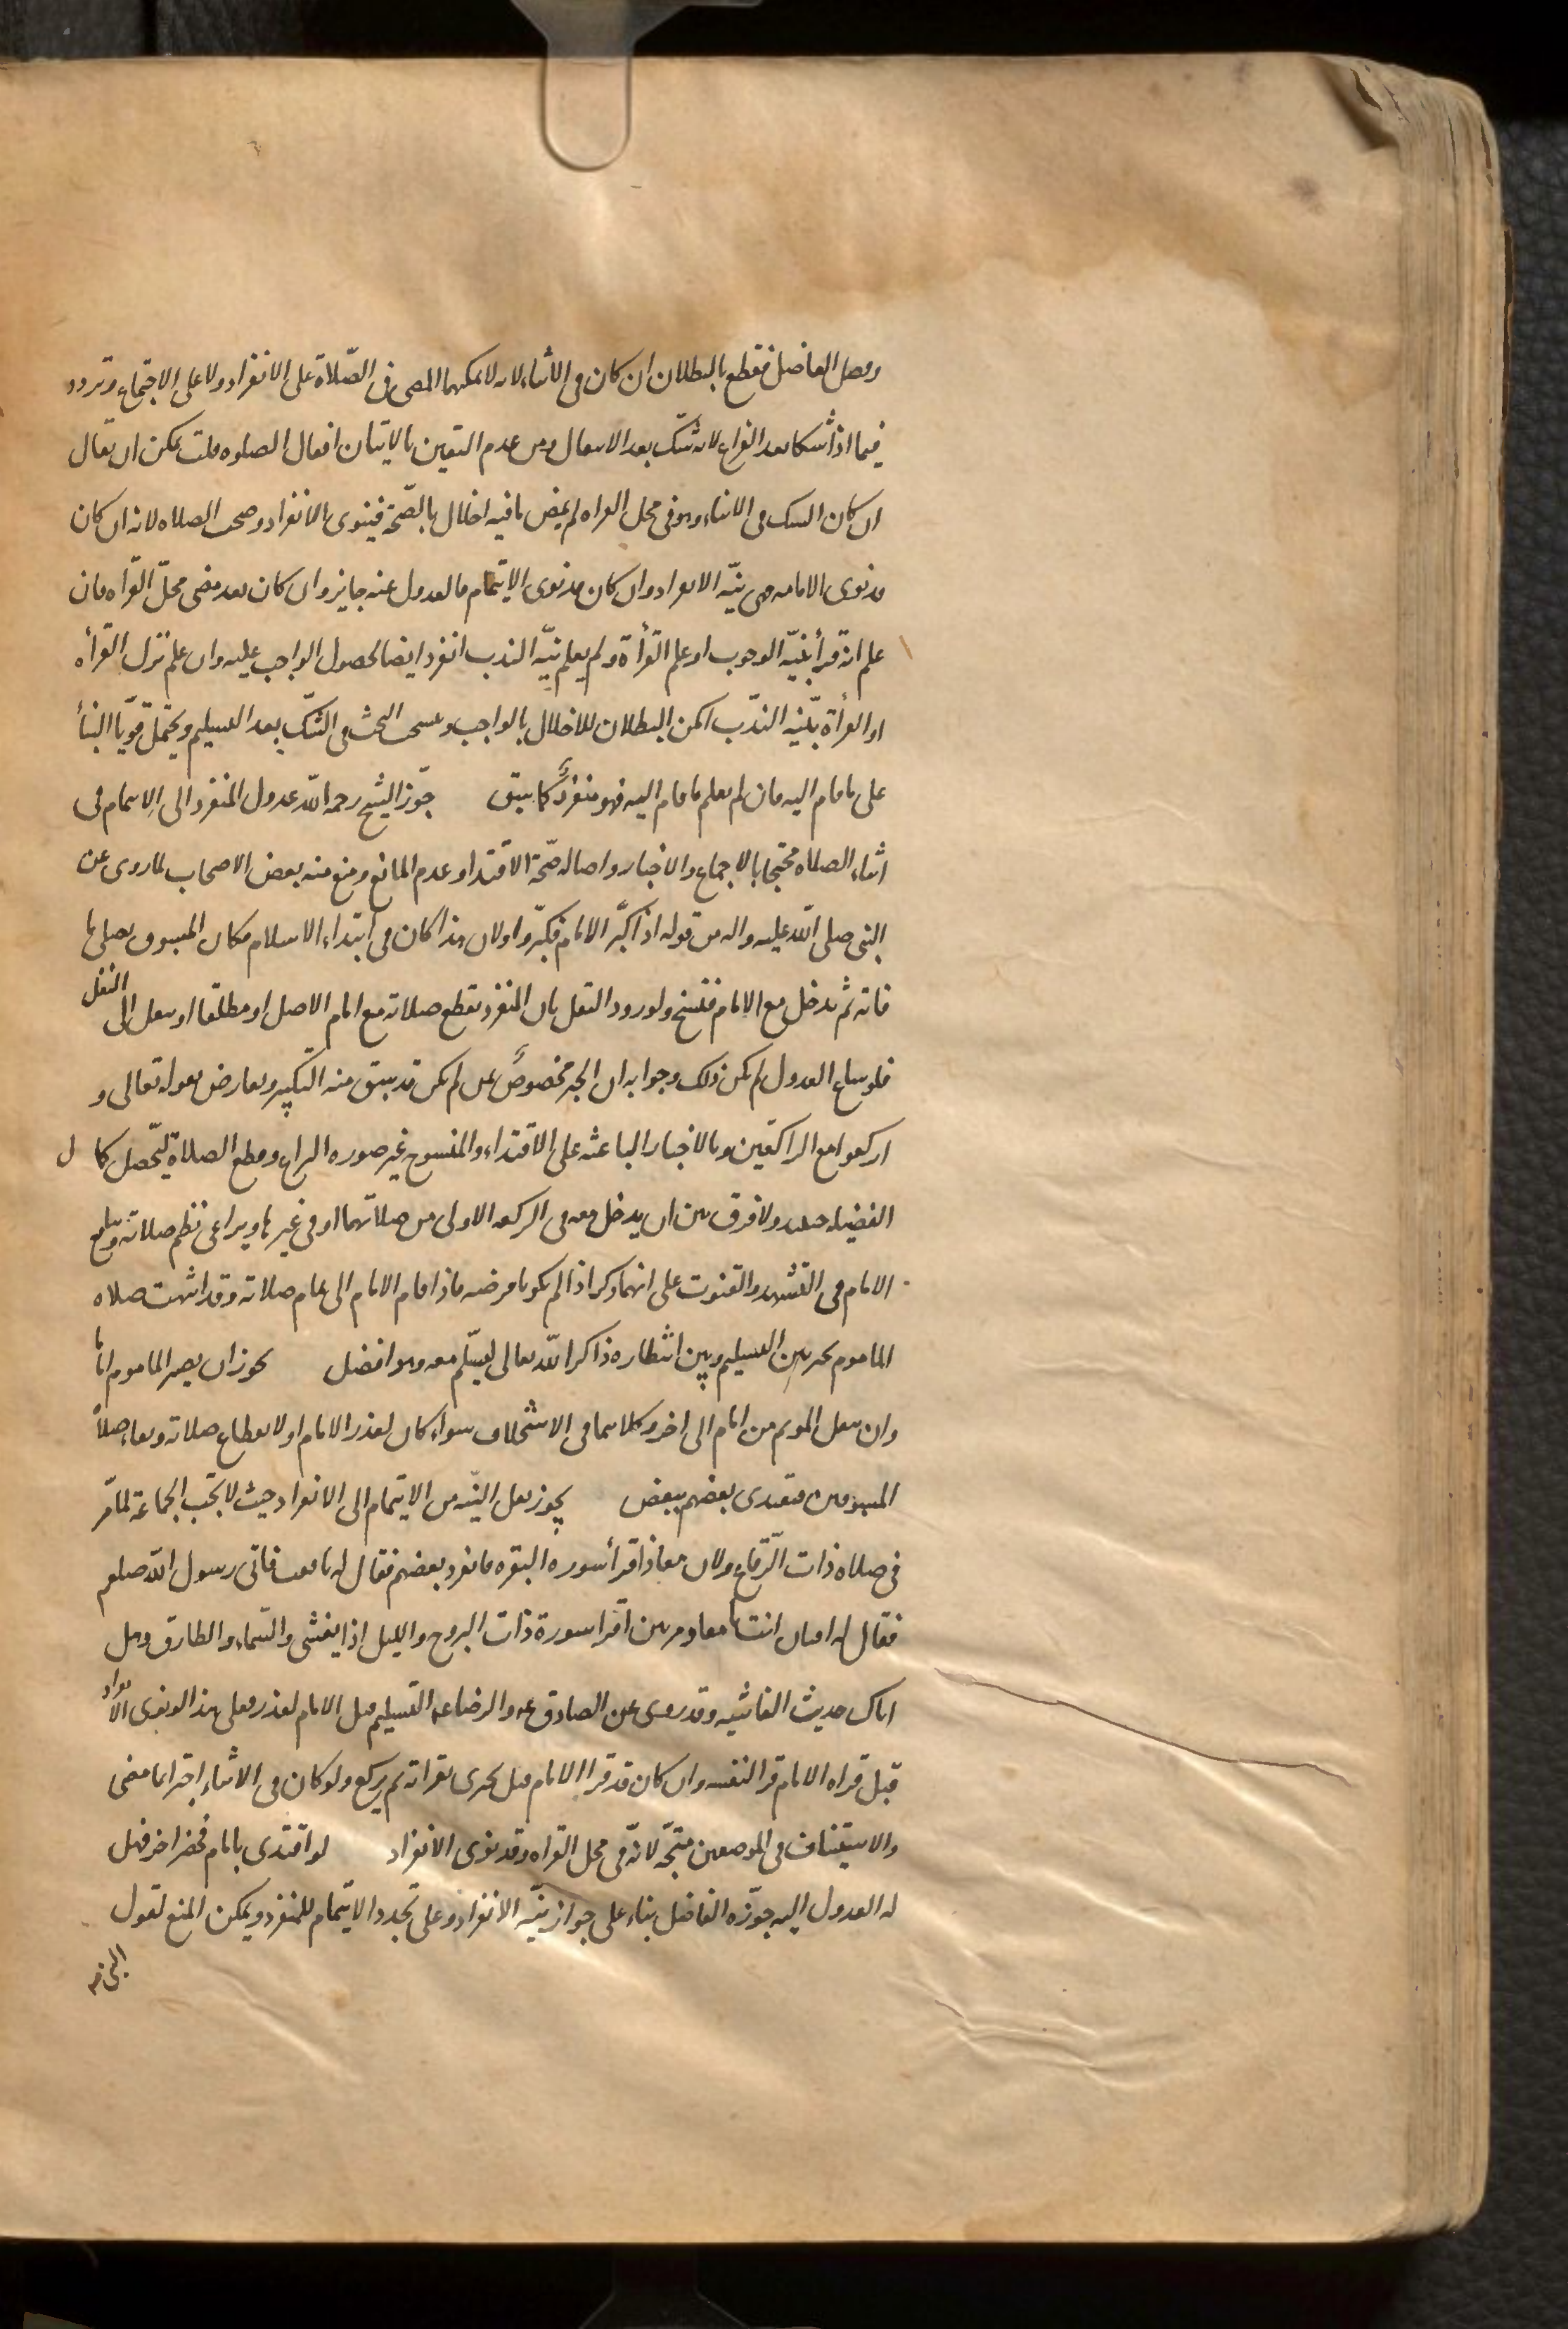 وفصل الفاضل فقطع بالبطلان ان كان فى الاثناء لانه لا يمكنهما المضى فى الصّلاة على الانفراد ولا على الاجتماع وتردد
فيما اذا شكا بعد الفراغ لانه شك بعد الانتقال ومن عدم اليقين بالاتيان افعال الصلوه قلت يمكن ان يقال
ان كان الشك فى الاثناء وهو فى محل القراه لم يمض ما فيه اخلال بالصّحة فينوى الانفراد وصحت الصلاه لانه ان كان
قد نوى الامامه فهى نيّه الانفراد وان كان قد نوى الايتمام فالعدول عنه جايز وان كان بعد مضى محلّ القراه فان
علم انه قرأ بنيّه الوجوب او علم القرأة ولم يعلم نيّه الندب انفرد ايضا لحصول الواجب عليه وان علم ترك القرأه
او القرأة بنيّه الندب امكن البطلان للاخلال بالواجب وينسحب البحث فى الشك بعد التسليم ويحتمل قويّا البنأ
على ما قام اليه فان لم يعلم ما قام اليه فهو منفردٌ كما سبق جوّز الشيخ رحمه اللّه عدول المنفرد الى الايتمام فى
اثناء الصلاه محتجا بالاجماع والاخبار واصاله صحّة الاقتدا وعدم المانع ومنع منه بعض الاصحاب لما روى عن
النبى صلى اللّه عليه واله من قوله اذا كبّر الامام فكبّروا ولان هذا كان فى ابتداء الاسلام فكان المسبوق يصلى ما
فاته ثم يدخل مع الامام فنسخ ولورود النقل بان المنفرد يقطع صلاته مع امام الاصل او مطلقا او ينقل الى النفل
فلو ساغ العدول لم يكن ذلك وجوابه ان الخبر مخصوصٌ بمن لم يكن قد سبق منه التكبير ويعارض بقوله تعالى و
اركعوا مع الراكعين وبالاخبار الباعثه على الاقتداء والمنسوخ غير صوره النزاع وقطع الصلاة ليحصل كمال
الفضيله حينئذ ولا فرق بين ان يدخل معه فى الركعه الاولى من صلاتهما او فى غيرها ويراعى نظم صلاته ويتابع
الامام فى التشهد والقنوت على انهما ذكر اذا لم يكونا فرضه فاذا قام الامام الى تمام صلاته وقد انتهت صلاه
الماموم تخير بين التسليم وبين انتظاره ذاكرا اللّه تعالى ليسلّم معه وهو افضل يجوز ان يصير الماموم اماما
وان ينقل الموتم من امام الى اخر وكلاهما فى الاستخلاف سواء كان لعذر الامام او لانقطاع صلاته وبقاء صلاة
المسبوقين فيقتدى بعضهم ببعض يجوز نقل النيّه من الايتمام الى الانفراد حيث لا تجب الجماعة لما مرّ
فى صلاه ذات الرّقاع ولان معاذا قرأ سوره البقره فانفرد بعضهم فقال له نافقت فاتى رسول اللّه صلعم
فقال له افتان انت يا معاذ مرتين اقرا سورة ذات البروج والليل اذا يغشى والسّماء والطارق وهل
اتاك حديث الغاشيه وقد روى عن الصادق ع والرضا ع التسليم قبل الامام لعذر فعلى هذا لو نوى الانفراد
قبل قراه الامام قرا لنفسه وان كان قد قرا الامام قيل يجزى بقراته ثم يركع ولو كان فى الاثناء اجترا بما مضى
والاستيناف فى الموضعين متجّه لانّه فى محل القراه وقد نوى الانفراد لو اقتدى بامام فحضر اخر فهل
له العدول اليه جوّزه الفاضل بناء على جواز نيّه الانفراد وعلى تجدد الايتمام للمنفرد ويمكن المنع لقول